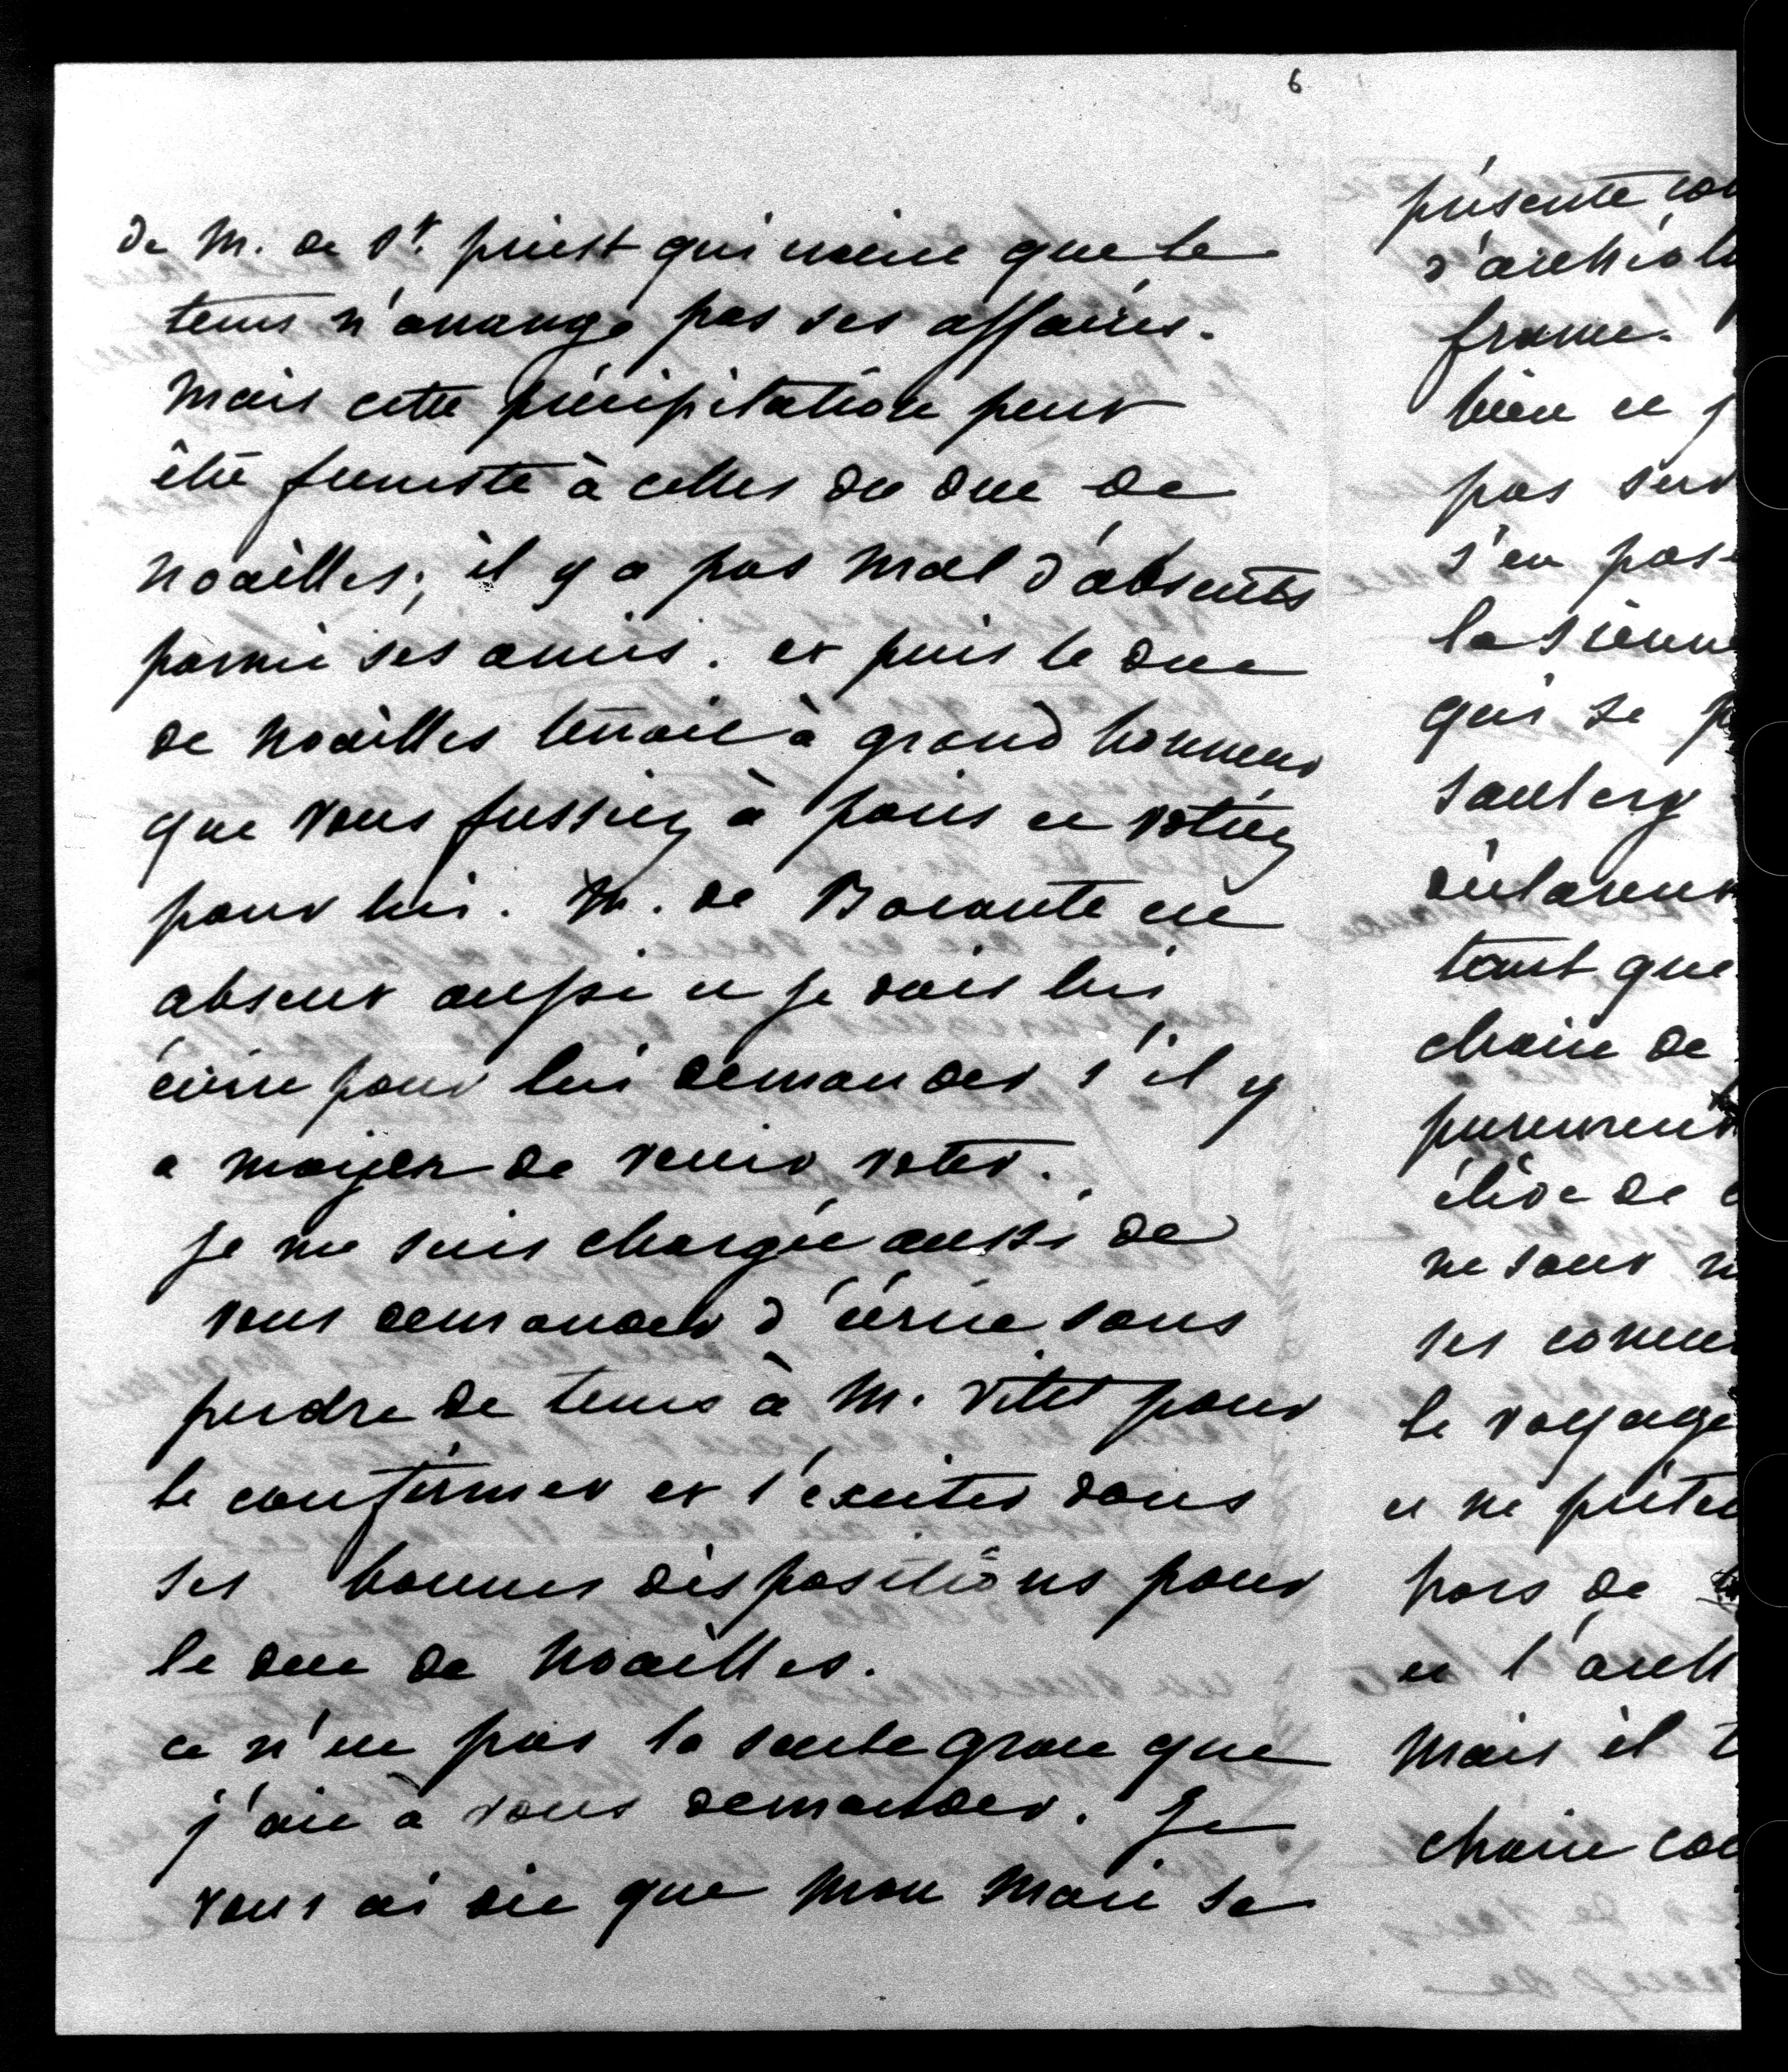 6
de M. de St. priest qui craint que le
tems n'arrange pas ses affaires.
Mais cette précipitation peut
être funeste à celles du duc de
Noailles; il y a pas mal d'absents
parmi ses amis. et puis le duc
de Noailles tenait à grand honneur
que vous fussiez à paris et votiez
pour lui. M. de Barante est
absent aussi et je vais lui
écrire pour lui demander s'il y
a moyen de venir voter.
je me suis chargée aussi de
vous demander d'écrire sans
perdre de tems à M. Vitet pour
le confirmer et l'exciter dans
ses bonnes dispositions pour
le duc de Noailles.
ce n'est pas la seule grace que
j'aie à vous demander. Je
vous ai dit que mon mari se
présente
france.
bien et
pas
s'en
la sienne
qui se
Saulcy
tant que
chaire de
purement
élève de
ne sont
ses
le voyage
et ne
hors de
et l'
Mais il
chaire